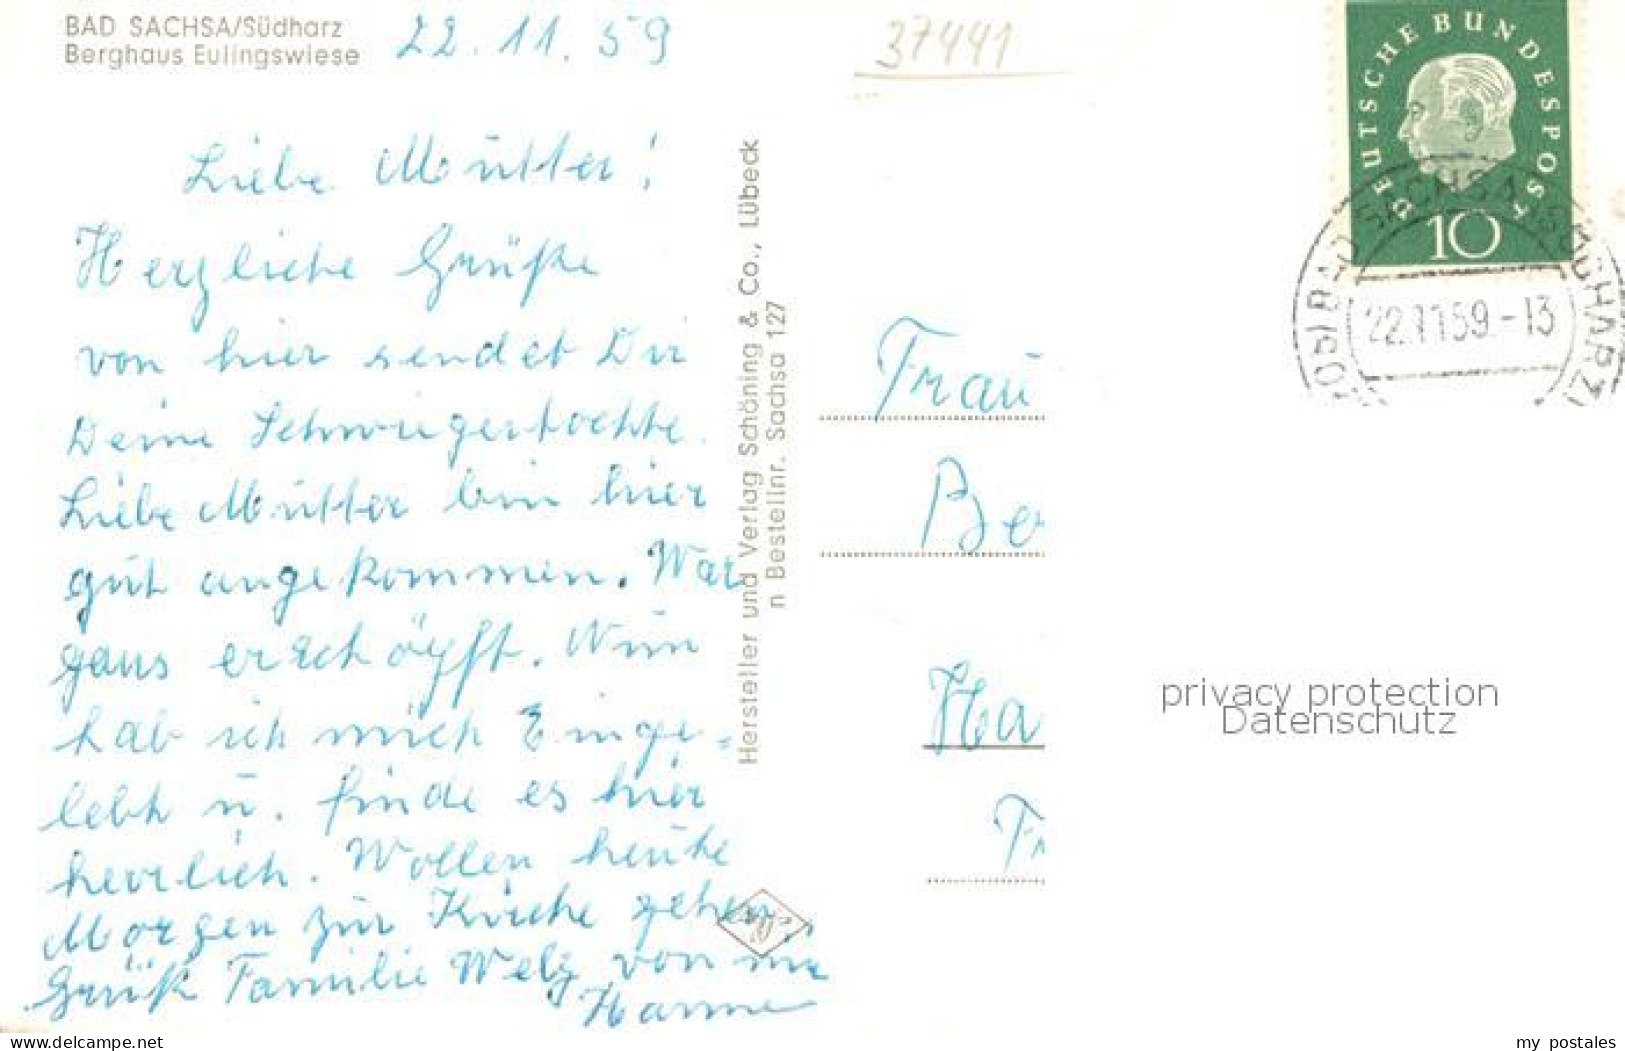 BAD SACHSA/Südharz
Berghaus Eulingswiese
22.11.59
37441
Liebe Mutter!
Herzliche Grüße
von hier sendet Dir
Deine Schwiegertochte.
Liebe Mutter bin hier
gut angekommen. War
gans erschöpft. Nun
hab ich mich Einge=
lebt u. finde es hier
herrlich. Wollen heute
Morgen zur Kirche gehen,
Grüß Familie Welz von mir
Hanne
Hersteller und Verlag Schöning & Co., Lübeck
n Bestellnr. Sachsa 127
DEUTSCHE BUNDESPOST
10
BAD SACHSA (SÜDHARZ)
22.11.59.-13
Frau
Be
Ha
Fr
privacy protection
Datenschutz
www.ansichtskarten-center.de
my postales